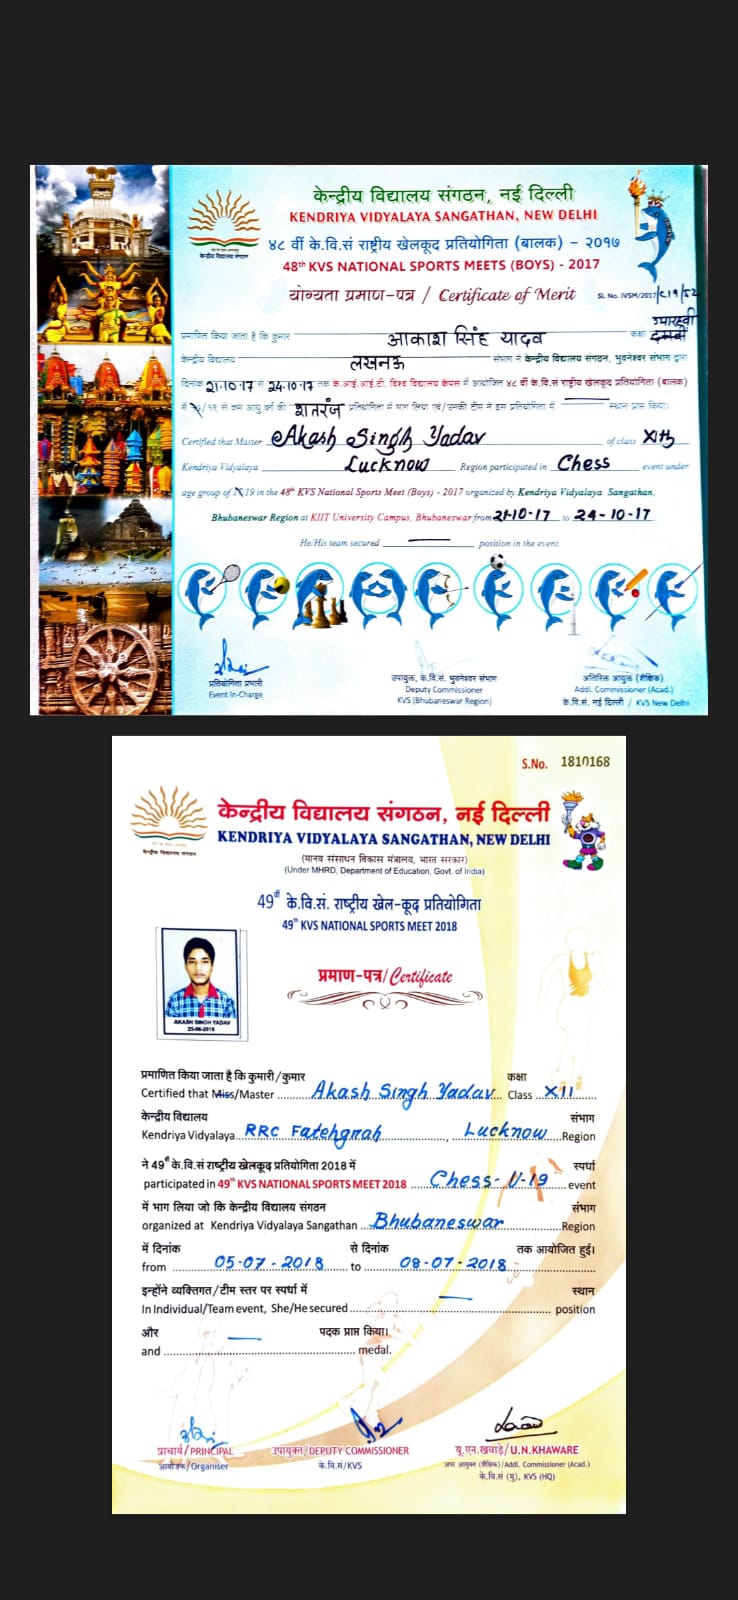 केन्द्रीय विद्यालय संगठन, नई दिल्ली
KENDRIYA VIDYALAYA SANGATHAN, NEW DELHI
४८ वीं के.वि.सं राष्ट्रीय खेलकूद प्रतियोगिता (बालक) – २०१७
48th KVS NATIONAL SPORTS MEETS (BOYS) - 2017
केन्द्रीय विद्यालय संगठन
योग्यता प्रमाण-पत्र / Certificate of Merit
SL No. IVSM/2017/C19/52
ग्यारहवी
प्रमाणित किया जाता है कि कुमार आकाश सिंह यादव कक्षा दसवीं
केन्द्रीय विद्यालय लखनऊ संभाग ने केन्द्रीय विद्यालय संगठन, भुवनेश्वर संभाग द्वारा
दिनांक 21-10-17 से 24-10-17 तक के.आई.आई.टी. विश्व विद्यालय केंपस में आयोजित ४८ वीं के.वि.सं राष्ट्रीय खेलकूद प्रतियोगिता (बालक)
में /१९ से कम आयु वर्ग की शतरंज प्रतियोगिता में भाग लिया एवं/उनकी टीम ने इस प्रतियोगिता में स्थान प्राप्त किया।
Certified that Master Akash Singh Yadav of class XIth
Kendriya Vidyalaya Lucknow Region participated in Chess event under
age group of /19 in the 48th KVS National Sports Meet (Boys) - 2017 organized by Kendriya Vidyalaya Sangathan,
Bhubaneswar Region at KIIT University Campus, Bhubaneswar from 21-10-17 to 24-10-17
He/His team secured — position in the event.
प्रतियोगिता प्रभारी
Event In-Charge
उपायुक्त, के.वि.सं. भुवनेश्वर संभाग
Deputy Commissioner
KVS (Bhubaneswar Region)
अतिरिक्त आयुक्त (शैक्षिक)
Addl. Commissioner (Acad.)
के.वि.सं. नई दिल्ली / KVS New Delhi
S.No. 1810168
केन्द्रीय विद्यालय संगठन, नई दिल्ली
KENDRIYA VIDYALAYA SANGATHAN, NEW DELHI
केन्द्रीय विद्यालय संगठन
(मानव संसाधन विकास मंत्रालय, भारत सरकार)
(Under MHRD, Department of Education, Govt. of India)
49वीं के.वि.सं. राष्ट्रीय खेल-कूद प्रतियोगिता
49th KVS NATIONAL SPORTS MEET 2018
प्रमाण-पत्र/Certificate
AKASH SINGH YADAV
प्रमाणित किया जाता है कि कुमारी/कुमार कक्षा
Certified that Miss/Master Akash Singh Yadav Class XII
केन्द्रीय विद्यालय संभाग
Kendriya Vidyalaya RRC Fatehgrah, Lucknow Region
ने 49वीं के.वि.सं राष्ट्रीय खेलकूद प्रतियोगिता 2018 में स्पर्धा
participated in 49th KVS NATIONAL SPORTS MEET 2018 Chess- U-19 event
में भाग लिया जो कि केन्द्रीय विद्यालय संगठन संभाग
organized at Kendriya Vidyalaya Sangathan Bhubaneswar Region
में दिनांक से दिनांक तक आयोजित हुई।
from 05-07-2018 to 08-07-2018
इन्होंने व्यक्तिगत/टीम स्तर पर स्पर्धा में स्थान
In Individual/Team event, She/He secured — position
और — पदक प्राप्त किया।
and medal.
प्राचार्य/PRINCIPAL
आयोजक/Organiser
उपायुक्त/DEPUTY COMMISSIONER
के.वि.सं/KVS
यू.एन.खवाड़े/U.N.KHAWARE
अपर आयुक्त (शैक्षिक)/Addl. Commissioner (Acad.)
के.वि.सं (मु), KVS (HQ)